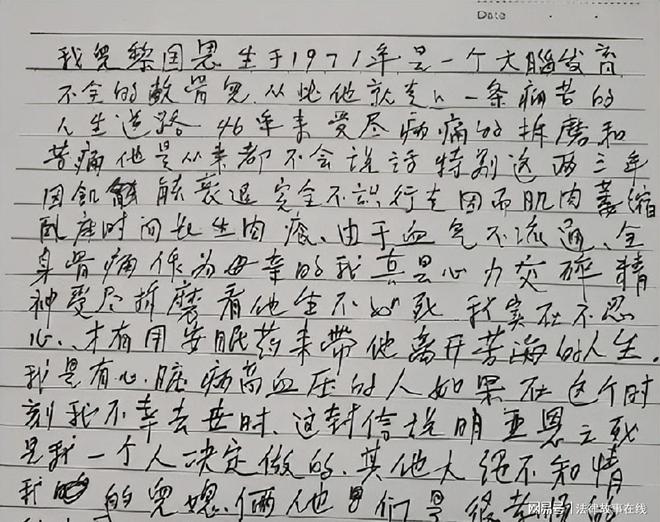 Date
我儿黎国恩生于1971年是一个大脑发育
不全的软骨儿.从此他就走上一条痛苦的
人生道路 46年来受尽病痛的折磨和
苦痛他是从来都不会说话特别这两三年
因机能衰退完全不识行走因而肌肉萎缩
卧床时间长生肉疮、由于血气不流通、全
身骨痛作为母亲的我真是心力交碎精
神受尽折磨看他生不如死 我实在不忍
心、才有用安眠药来带他离开苦海的人生.
我是有心脏病高血压的人如果在这个时
刻我不幸去世时、这封信说明亚恩之死
是我一个人决定做的、其他人绝不知情
我 的儿媳俩他们是
搜狐号@法律故事在线